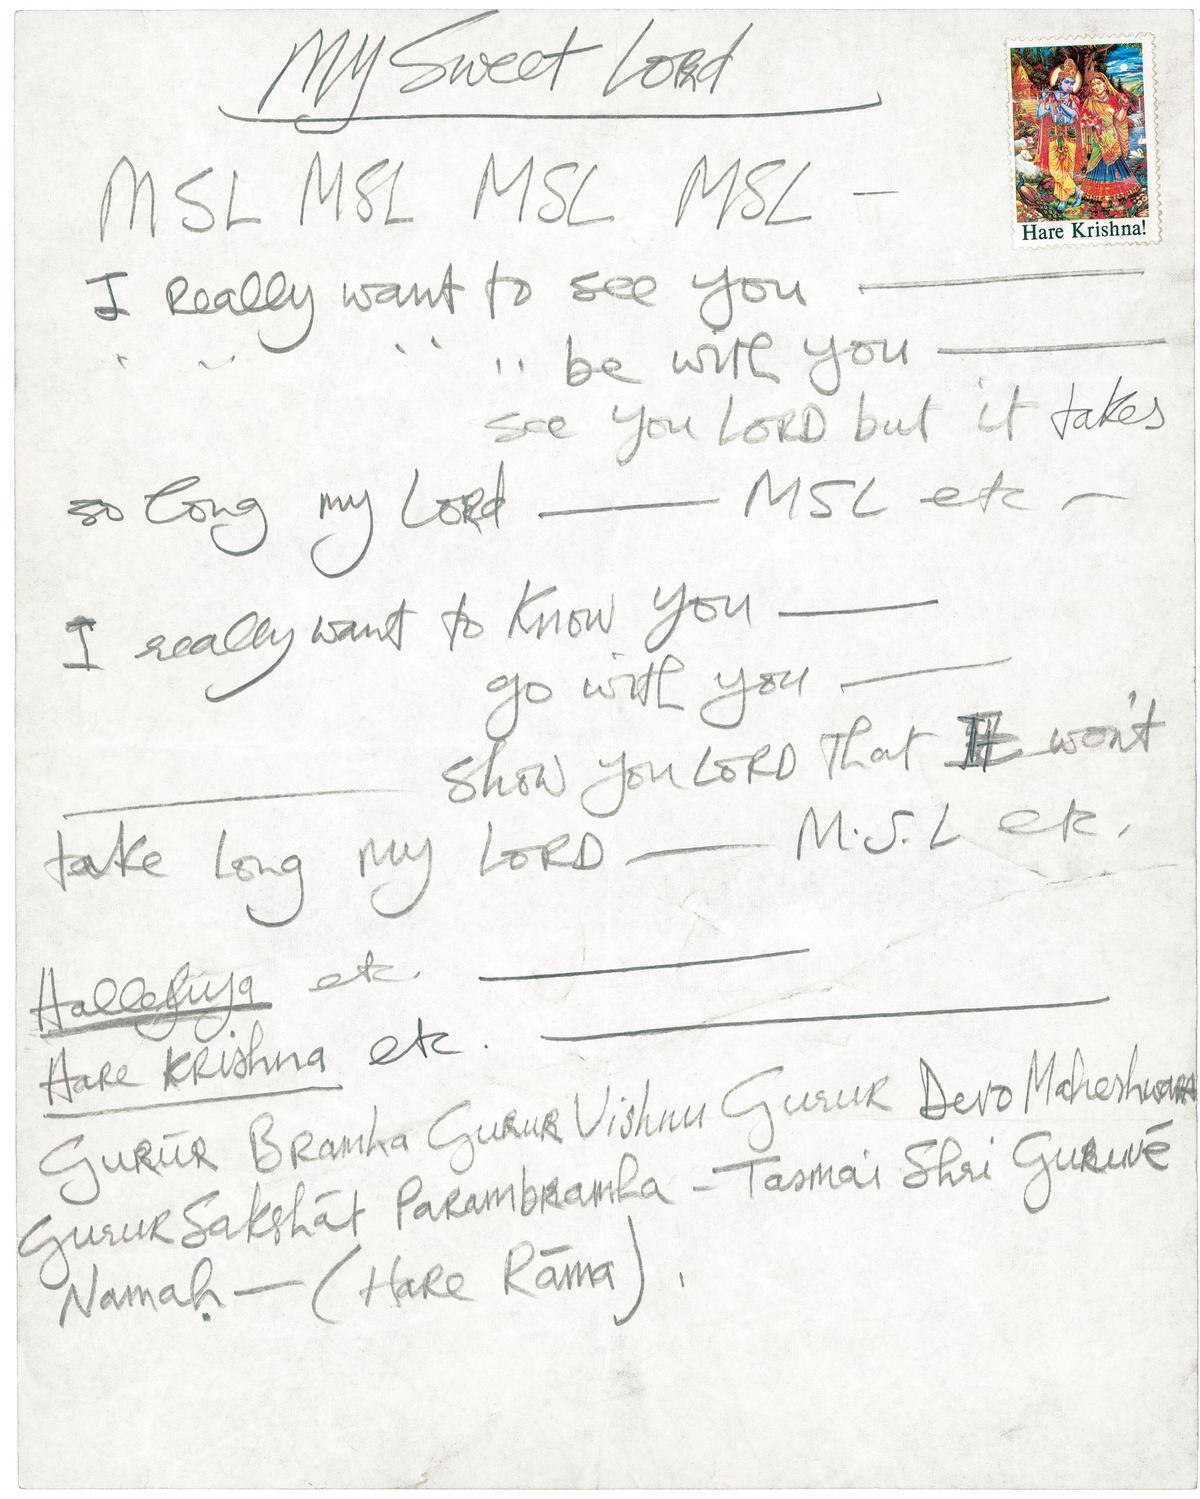 My Sweet Lord
Hare Krishna!
MSL MSL MSL MSL —
I Really want to see you ———
" " " " be with you ———
see you LORD but it takes
so long my Lord ——— MSL etc —
I really want to know you ———
go with you ———
——— show you LORD that it won't
take long my LORD ——— M.S.L etc.
Hallelujya etc. ———
Hare Krishna etc. ———
Gurūr Bramha Gurur Vishnu Gurur Devo Maheshwara
Gurur Sakshāt Parambramha - Tasmai Shri Guruvē
Namaḥ — (Hare Rāma).